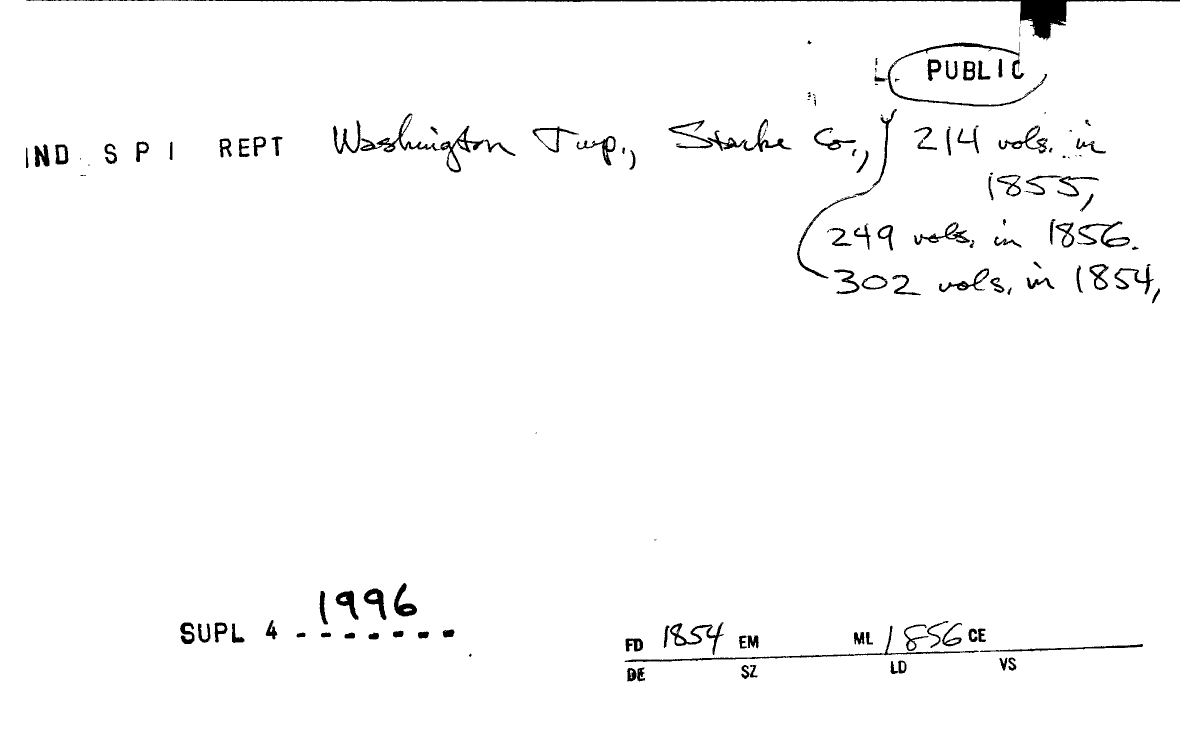 PUBLIC
IND S P I REPT Washington Twp., Starke Co., 214 vols. in
1855,
249 vols. in 1856.
302 vols. in 1854,
1996
SUPL 4 - - - - - - -
FD 1854 EM ML 1856 CE
DE SZ LD VS